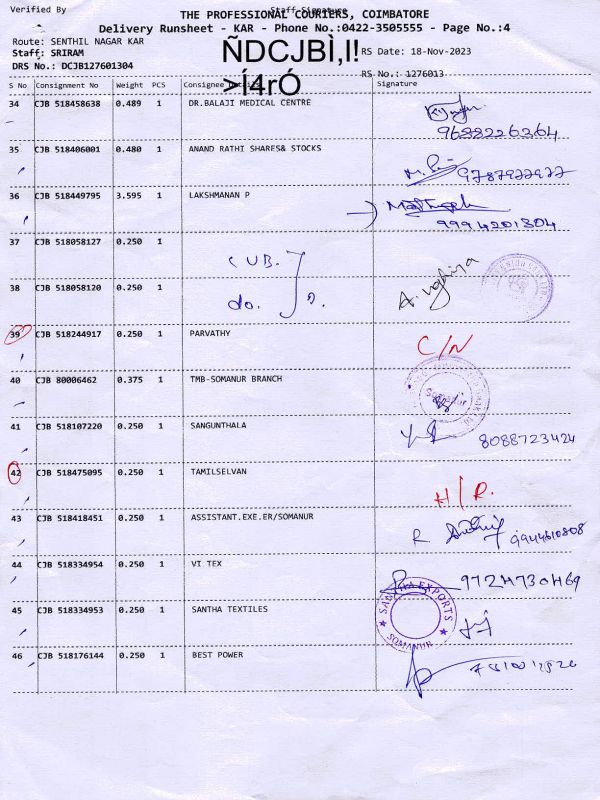 Verified By Staff Signature
THE PROFESSIONAL COURIERS, COIMBATORE
Delivery Runsheet - KAR - Phone No.:0422-3505555 - Page No.:4
Route: SENTHIL NAGAR KAR
ÑDCJBÌ,I!
Staff: SRIRAM RS Date: 18-Nov-2023
DRS No.: DCJB127601304
>Í4rÓ
RS No.: 1276013
S No Consignment No Weight PCS Consignee Details Signature
34 CJB 518458638 0.489 1 DR.BALAJI MEDICAL CENTRE
35 CJB 518406001 0.480 1 ANAND RATHI SHARES& STOCKS 9787922922
36 CJB 518449795 3.595 1 LAKSHMANAN P 9994201804
37 CJB 518058127 0.250 1 CUB.
38 CJB 518058120 0.250 1 do.
39 CJB 518244917 0.250 1 PARVATHY C/N
40 CJB 80006462 0.375 1 TMB-SOMANUR BRANCH Somanur
41 CJB 518107220 0.250 1 SANGUNTHALA 8088723424
42 CJB 518475095 0.250 1 TAMILSELVAN H/R.
43 CJB 518418451 0.250 1 ASSISTANT.EXE.ER/SOMANUR 9944610808
44 CJB 518334954 0.250 1 VI TEX 9724730469
45 CJB 518334953 0.250 1 SANTHA TEXTILES SANTHA EXPORTS SOMANUR
46 CJB 518176144 0.250 1 BEST POWER